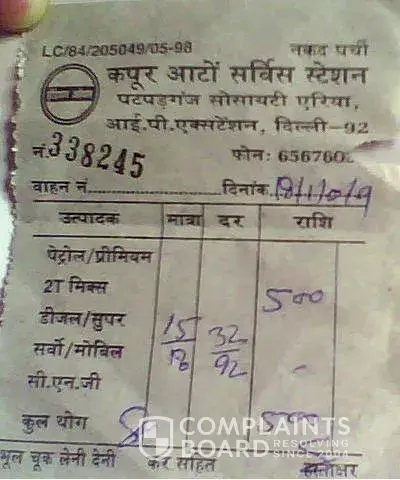 LC/84/205049/05-98 नकद पर्ची
कपूर आटों सर्विस स्टेशन
पटपड़गंज सोसायटी एरिया,
आई.पी.एक्सटेंशन, दिल्ली-92
नं. 338245 फोन: 6567602
वाहन नं. दिनांक
उत्पादक मात्रा दर राशि
पेट्रोल/प्रीमियम
2T मिक्स 500
डीजल/सुपर
सर्वो/मोबिल 15/18 32/92
सी.एन.जी
कुल योग
भूल चूक लेनी देनी कर सहित हस्ताक्षर
COMPLAINTS
BOARD RESOLVING
SINCE 2004